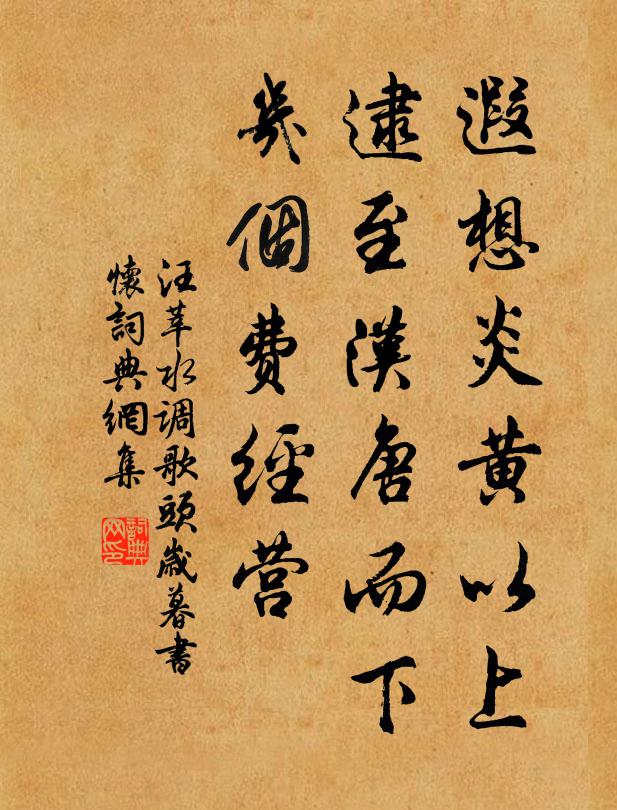 遐想炎黄以上
逮至漢唐而下
幾個費經營
汪莘水调歌頭歲暮書
懷詞典網集
詞典
网印